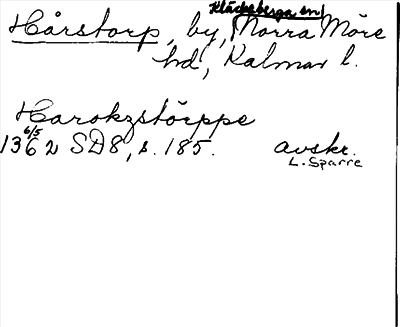 Kläckeberga sn
Hårstorp, by, Norra Möre
hd, Kalmar l.
Harokzstörppe
6/5
1362 SD8, s. 185. avskr.
L. Sparre